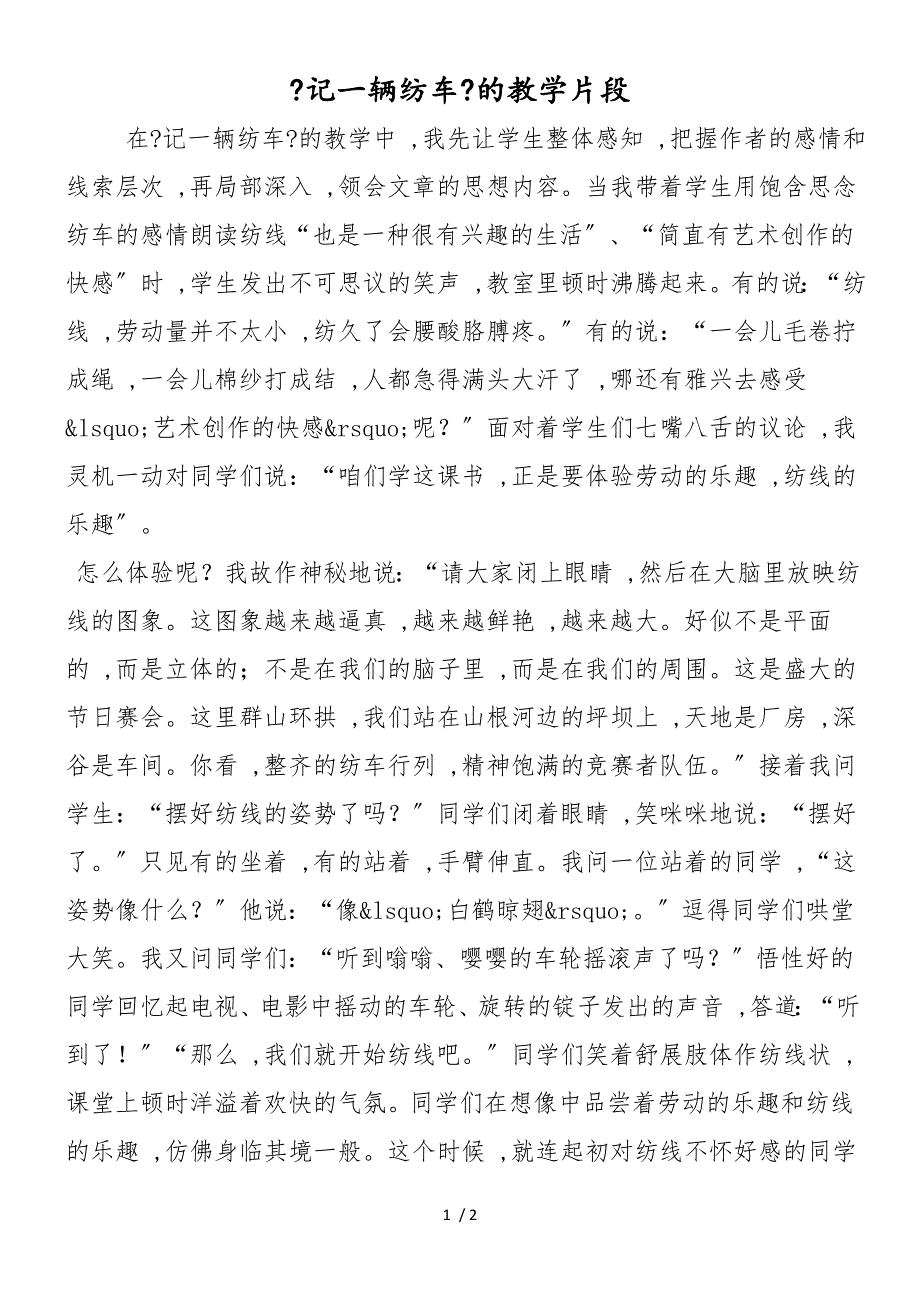 ?记一辆纺车?的教学片段
在?记一辆纺车?的教学中 ,我先让学生整体感知 ,把握作者的感情和
线索层次 ,再局部深入 ,领会文章的思想内容。当我带着学生用饱含思念
纺车的感情朗读纺线“也是一种很有兴趣的生活〞、“简直有艺术创作的
快感〞时 ,学生发出不可思议的笑声 ,教室里顿时沸腾起来。有的说：“纺
线 ,劳动量并不太小 ,纺久了会腰酸胳膊疼。〞有的说：“一会儿毛卷拧
成绳 ,一会儿棉纱打成结 ,人都急得满头大汗了 ,哪还有雅兴去感受
&lsquo;艺术创作的快感&rsquo;呢？〞面对着学生们七嘴八舌的议论 ,我
灵机一动对同学们说：“咱们学这课书 ,正是要体验劳动的乐趣 ,纺线的
乐趣〞。
怎么体验呢？我故作神秘地说：“请大家闭上眼睛 ,然后在大脑里放映纺
线的图象。这图象越来越逼真 ,越来越鲜艳 ,越来越大。好似不是平面
的 ,而是立体的；不是在我们的脑子里 ,而是在我们的周围。这是盛大的
节日赛会。这里群山环拱 ,我们站在山根河边的坪坝上 ,天地是厂房 ,深
谷是车间。你看 ,整齐的纺车行列 ,精神饱满的竞赛者队伍。〞接着我问
学生：“摆好纺线的姿势了吗？〞同学们闭着眼睛 ,笑咪咪地说：“摆好
了。〞只见有的坐着 ,有的站着 ,手臂伸直。我问一位站着的同学 ,“这
姿势像什么？〞他说：“像&lsquo;白鹤晾翅&rsquo;。〞逗得同学们哄堂
大笑。我又问同学们：“听到嗡嗡、嘤嘤的车轮摇滚声了吗？〞悟性好的
同学回忆起电视、电影中摇动的车轮、旋转的锭子发出的声音 ,答道：“听
到了！〞“那么 ,我们就开始纺线吧。〞同学们笑着舒展肢体作纺线状 ,
课堂上顿时洋溢着欢快的气氛。同学们在想像中品尝着劳动的乐趣和纺线
的乐趣 ,仿佛身临其境一般。这个时候 ,就连起初对纺线不怀好感的同学
1 / 2